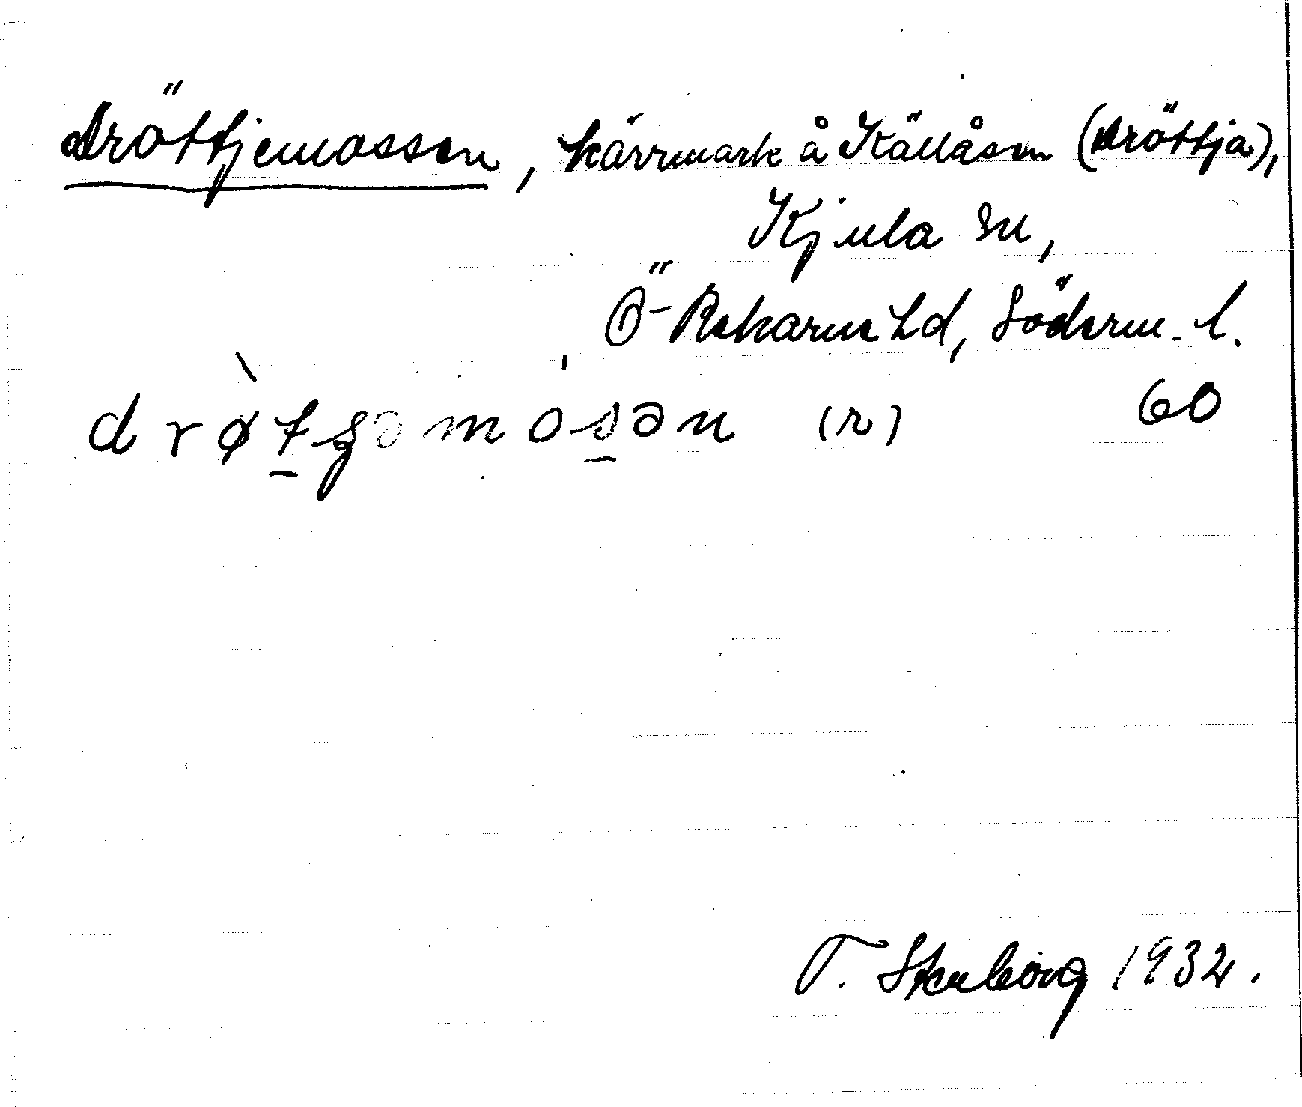 Dröttjemossen, kärrmark å Källåsen (Dröttja),
Kjula sn,
Ö-Rekarne hd, Söderm. l.
drø̀tjəmósən (r) 60
T. 1932.